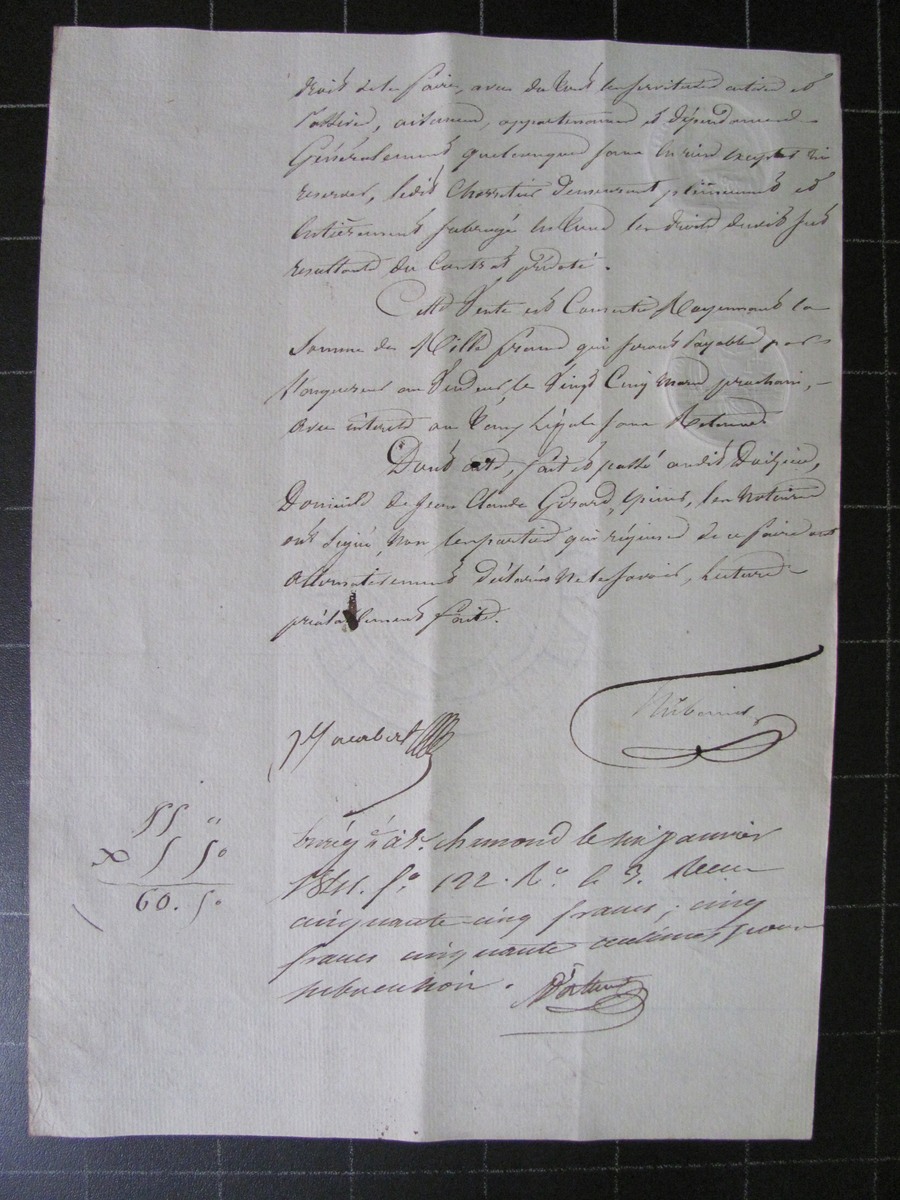 droit de le faire, avec du tout les servitudes actives et
passives, aisances, appartenances et dépendances
Généralement quelconques sans en rien excepter ni
reserver, ledit Charretier demeurant pleinement et
Entièrement subrogé en tous les droits dudit
resultants du Contrat précité.
Cette Vente est Consentie Moyennant la
Somme de Mille francs qui seront payables par
l'acquereur au Vendeur, le Vingt Cinq mars prochain,
avec intérêts au taux Légale sans Retenue
Dont acte, fait et passé audit
Domicile de Jean Claude Girard, les Notaires
ont Signé, Non les parties qui réquises de ce faire ont
Déclarés Ne le Savoir, Lecture
préalablement faite.
55 "
5 50
60. 50
Enrég.é à St. chamond le six janvier
f.o 122. R.o C 3. Reçu
cinquante cinq francs ; cinq
francs cinquante centimes pour
subvention.